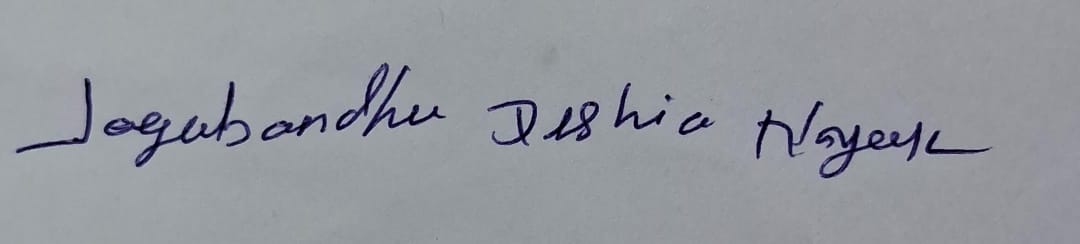 Jagabandhu Deshia Nayak